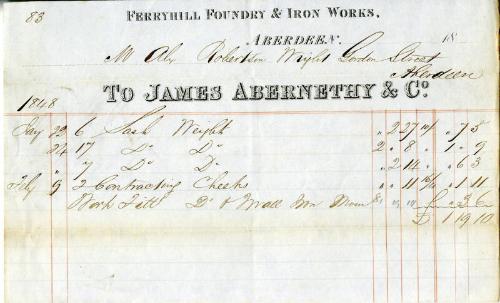 83
FERRYHILL FOUNDRY & IRON WORKS,
ABERDEEN. 18
Mr Alex Robertson Wright Gordon Street
Aberdeen
1848
TO JAMES ABERNETHY & Co.
Jany 22 6 Sash Weight " 2 27 10/ " 7 5
24 17 Do Do 2 " 8 " 1 " 9
" 7 Do Do " 2 14 " " 6 3
Feby 9 2 Contracting Cheeks " " 11 16/ " 1 11
Work Fitt Do & Mall Iron " 2 6
£ 1 19 10